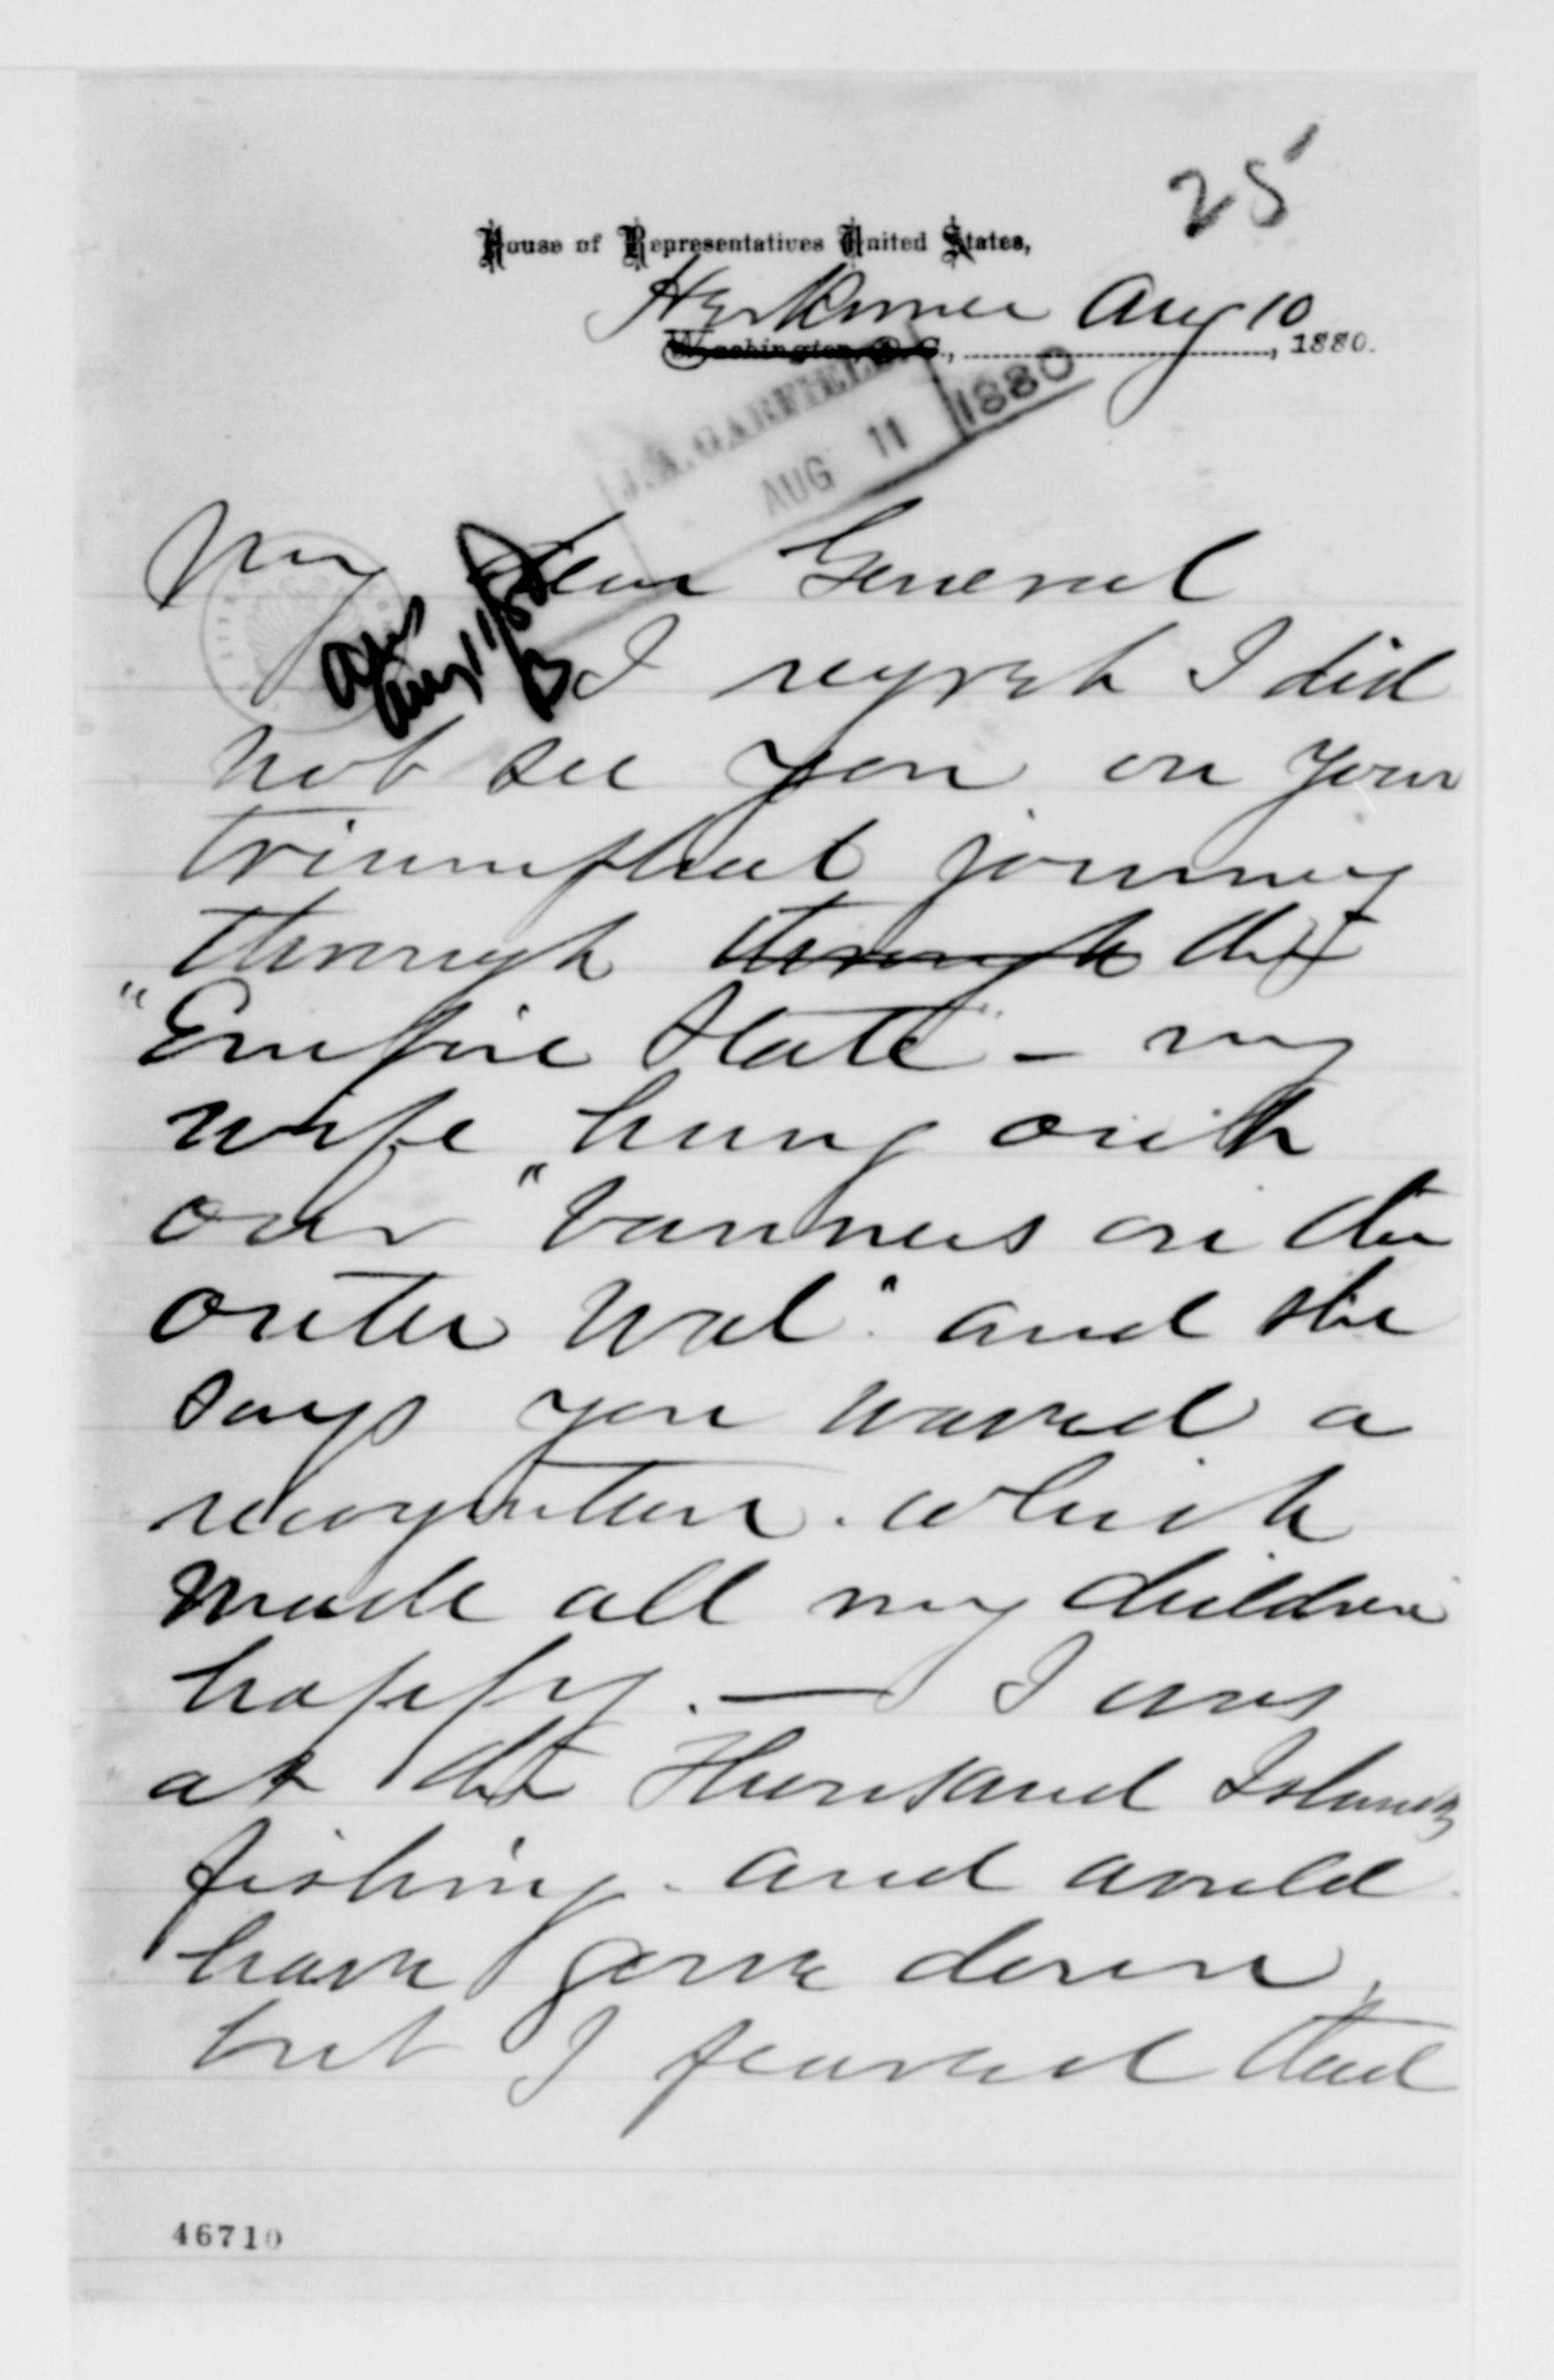 25
House of Representatives United States,
Herkimer Aug 10
Washington, D.C., 1880.
J. A. GARFIELD.
AUG 11 1880
My Dear General
Ans
Aug 11/80
B
I regret I did
not see you on your
triumphal journey
through through the
"Empire State" - my
wife hung out
our "banners on the
outer wal" and she
says you waved a
recognition. which
made all my children
happy. — I was
at the Thousand Islands
fishing. and would
have gone down,
but I feared that
46710